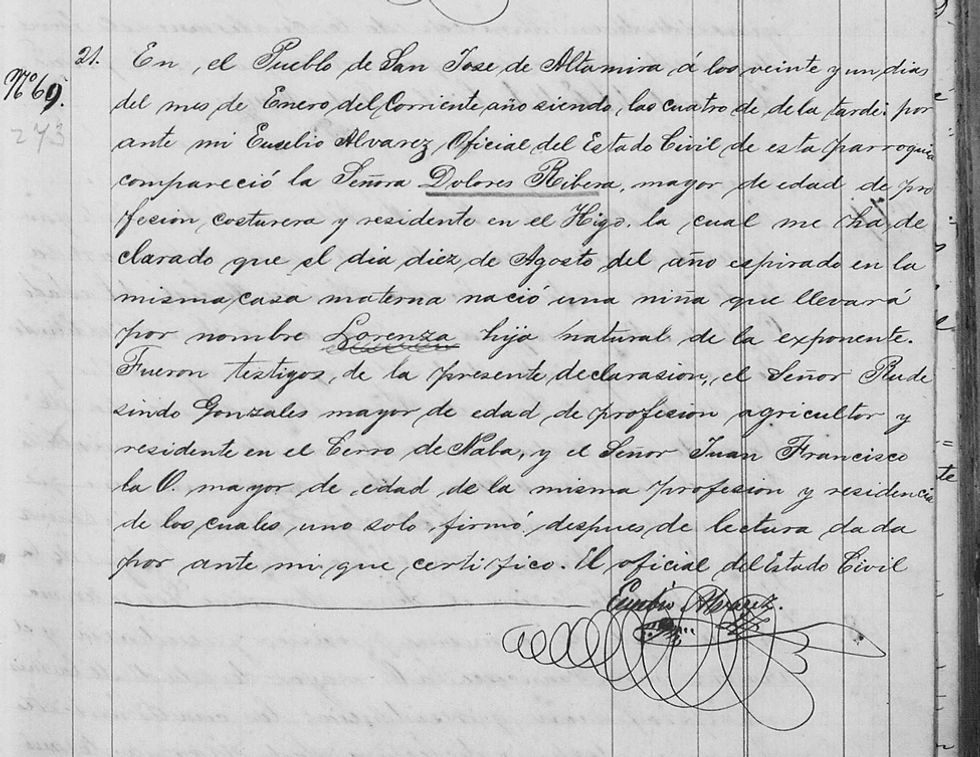 21.
Nº 69.
273
En el Pueblo de San Jose de Altamira á los veinte y un dias
del mes de Enero del Corriente año siendo las cuatro de de la tarde: por
ante mi Eusebio Alvarez Oficial del Estado Civil de esta parroquia
compareció la Señora Dolores Ribera, mayor de edad de pro
fesion costurera y residente en el Higo. la cual me ha de
clarado que el dia diez de Agosto del año espirado en la
misma casa materna nació una niña que llevará
por nombre Lorenza hija natural de la exponente.
Fueron testigos de la presente declarasion, el Señor Rude
sindo Gonzales mayor de edad de profesion agricultor y
residente en el Cerro de Naba, y el Señor Juan Francisco
la O. mayor de edad de la misma profesion y residencia
de los cuales uno solo firmó despues de lectura dada
por ante mi que certifico. El oficial del Estado Civil
Eusebio Alvarez.
te